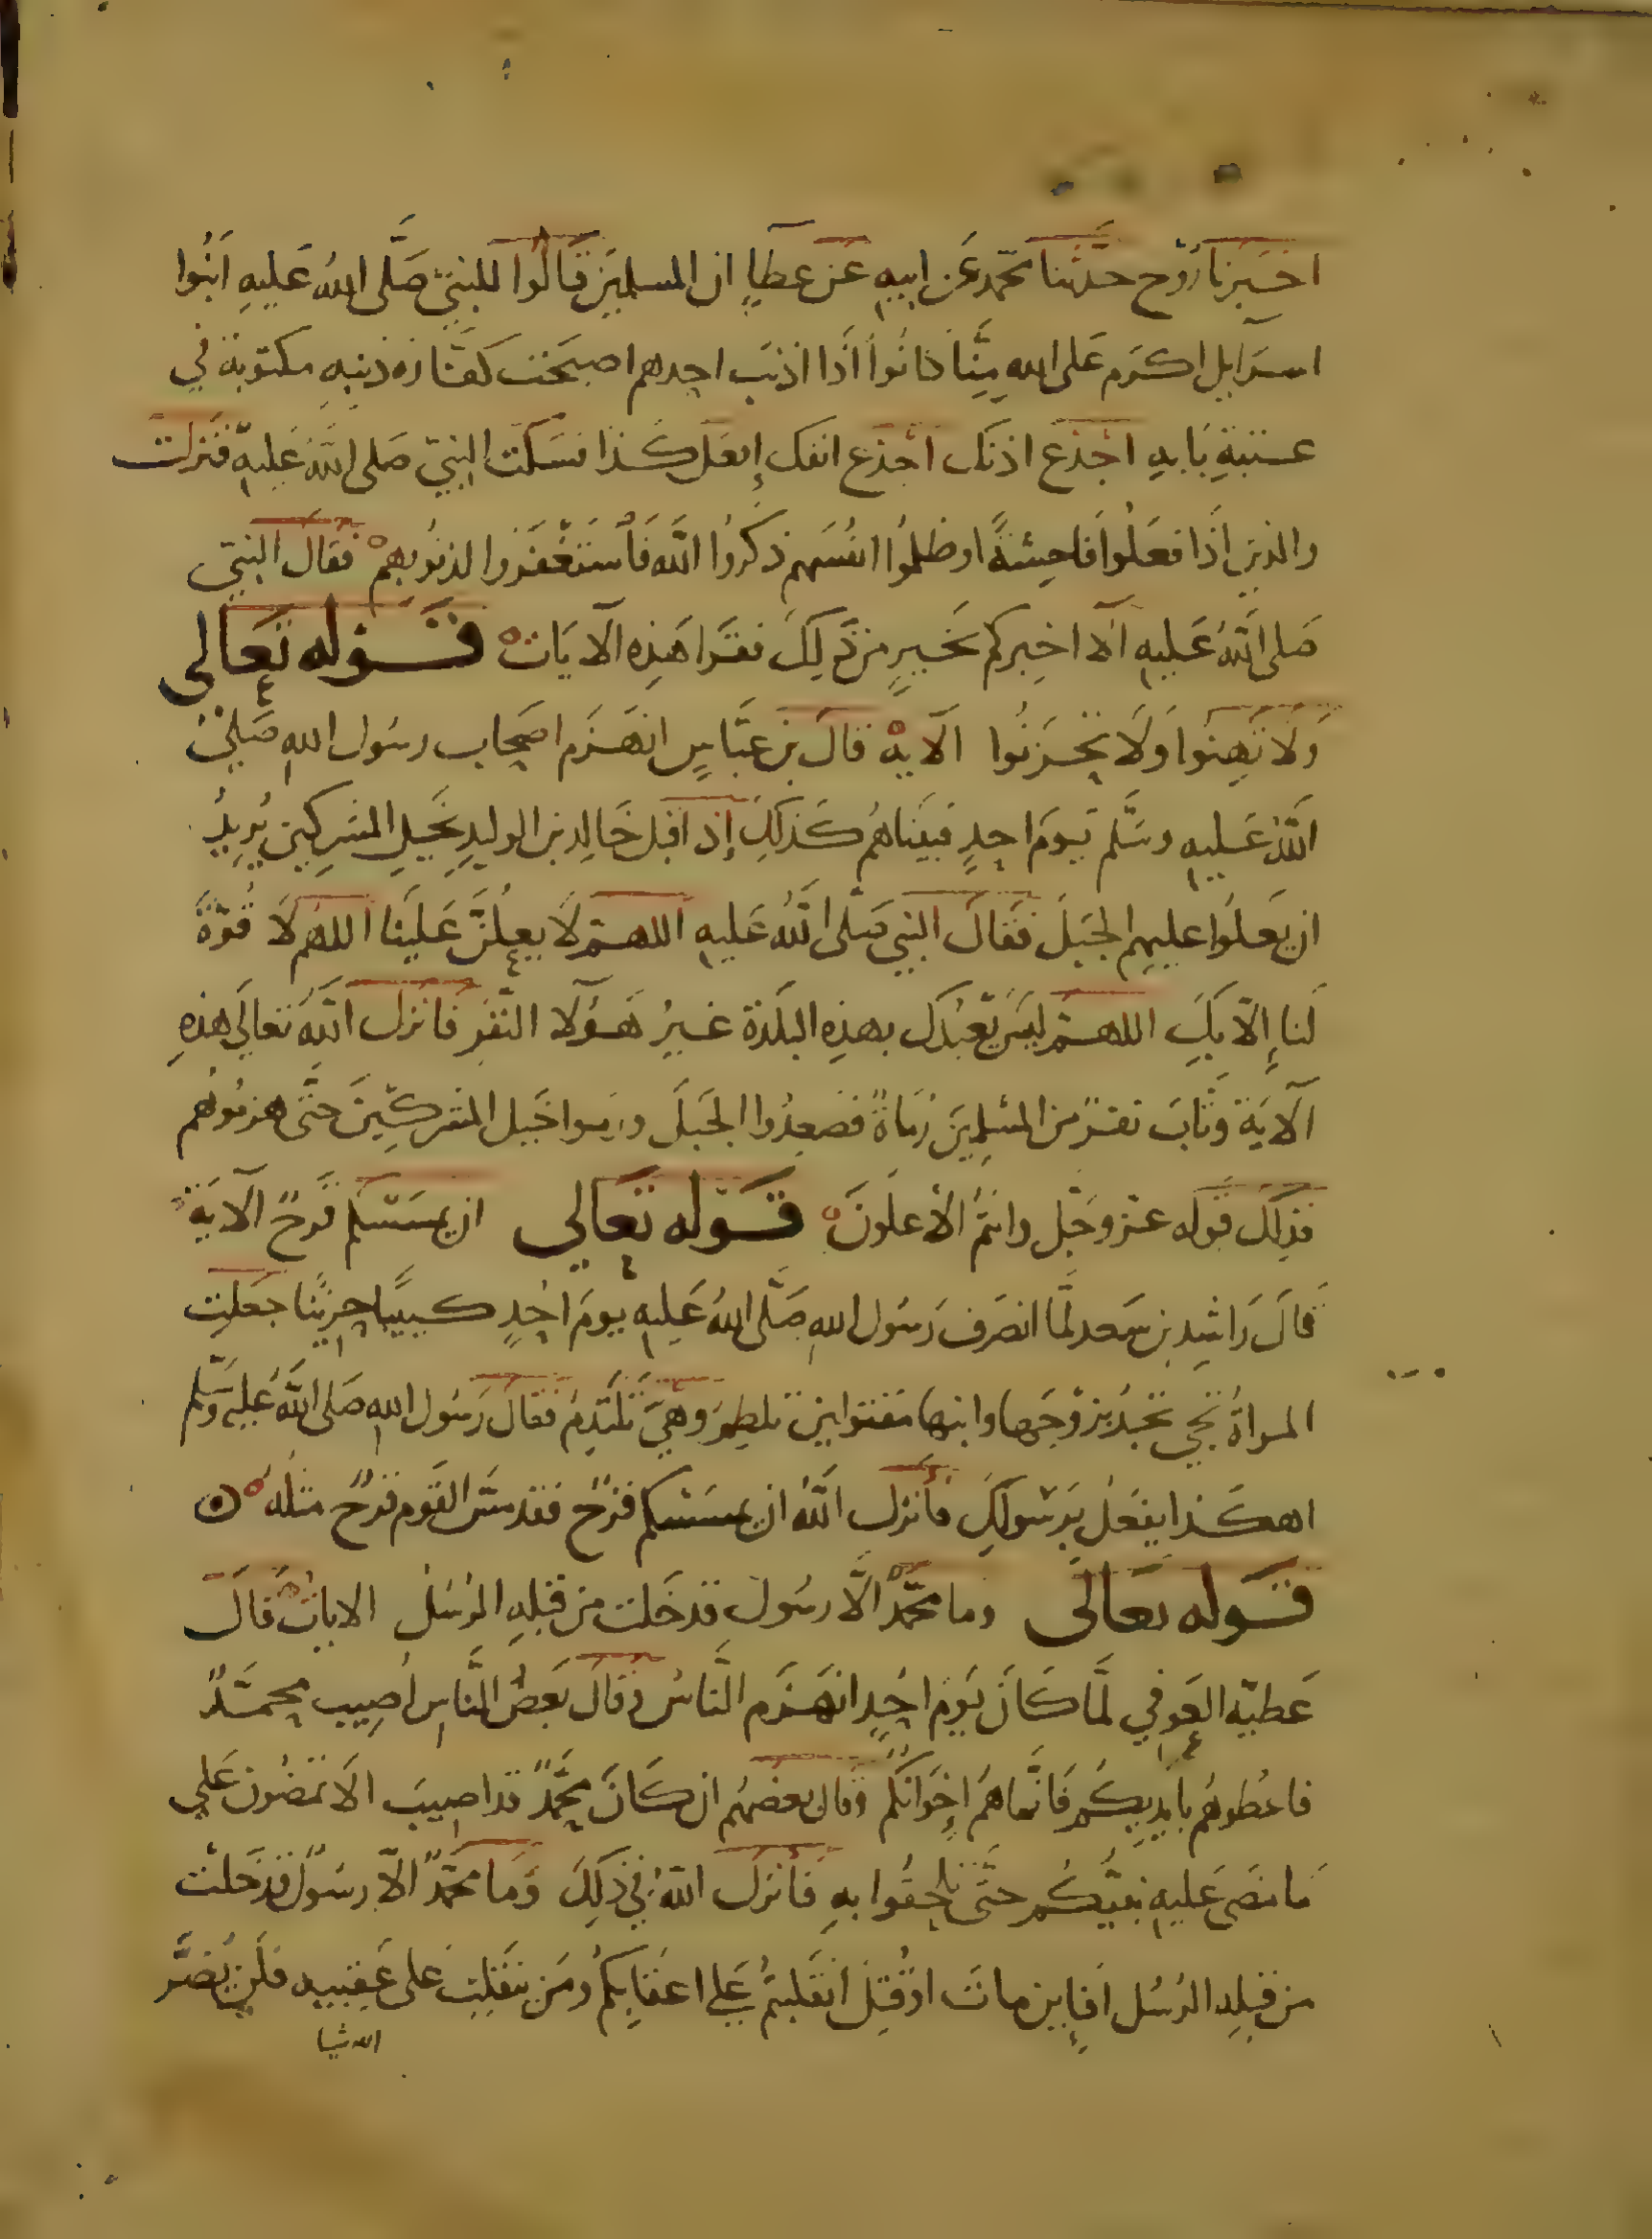 اخبرنا روح حدثنا محمد عن ابيه عن عطاء ان المسلمين قالوا للنبي صلى الله عليه ابنوا
اسرايل اكرم على الله منا كانوا اذا اذنب احدهم اصبحت كفارة ذنبه مكتوبة في
عتبة بابه اجذع اذنك اجذع انفك افعل كذا فسكت النبي صلى الله عليه فنزلت
والذين اذا فعلوا فاحشة او ظلموا انفسهم ذكروا الله فاستغفروا لذنوبهم فقال النبي
صلى الله عليه الا اخبركم بخير من ذلك فقرا هذه الايات قوله تعالى
ولا تهنوا ولا تحزنوا الاية قال بن عباس انهزم اصحاب رسول الله صلى
الله عليه وسلم يوم احد فبينا هم كذلك إذ اقبل خالد بن الوليد بخيل المشركين يريد
ان يعلوا عليهم الجبل فقال النبي صلى الله عليه اللهم لا يعلن علينا اللهم لا قوة
لنا إلا بك اللهم ليس يعبدك بهذه البلدة غير هؤلا النفر فانزل الله تعالى هذه
الآية وثاب نفر من المسلمين رماة فصعدوا الجبل ورموا خيل المشركين حتى هزموهم
فذلك قوله عز وجل وانتم الأعلون قوله تعالى ان يمسسكم قرح الآية
قال راشد بن سعد لما انصرف رسول الله صلى الله عليه يوم احد كييبا حزينا جعلت
المراة تجي بزوجها وابنها مقتولين وهي تلتدم فقال رسول الله صلى الله عليه وسلم
اهكذا يفعل برسولك فأنزل الله ان يمسسكم قرح فقد مس القوم قرح مثله
قوله تعالى وما محمد الا رسول قد خلت من قبله الرسل الايات قال
عطية العوفي لما كان يوم احد انهزم الناس فقال بعض الناس اصيب محمد
فاعطوهم بايديكم فانما هم إخوانكم وقال بعضهم ان كان محمد قد اصيب الا تمضون على
ما مضى عليه نبيكم حتى تلحقوا به فأنزل الله في ذلك وما محمد الا رسول قد خلت
من قبله الرسل افإين مات او قتل انقلبتم على اعقابكم ومن ينقلب على عقبيه فلن يضر
الله شيا